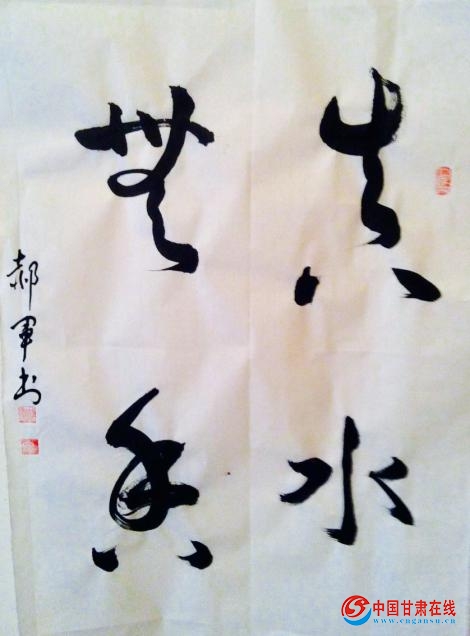 真水
無香
郝軍书
中国甘肃在线
www.cngansu.cn